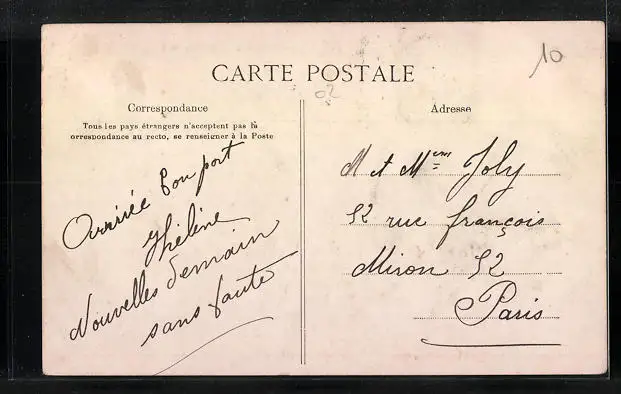 CARTE POSTALE
10
02
Correspondance
Tous les pays étrangers n'acceptent pas la
correspondance au recto, se renseigner à la Poste
Arrivée bon port
Hélène
Nouvelles demain
sans faute
Adresse
M et Mme Joly
52 rue françois
Miron 52
Paris